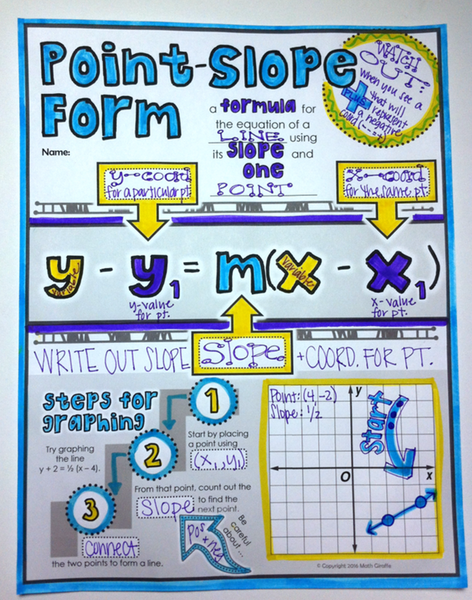 Point-Slope
Form
Name:
a formula for
the equation of a
LINE using
its slope and
one
POINT
WATCH
OUT!
When you see a
PLUS that will
represent
a negative
coord (- · -) = +
y-coord
for a particular pt.
x-coord
for the same pt.
y - y1 = m(x - x1)
variable
variable
y-value
for pt.
x-value
for pt.
WRITE OUT SLOPE + COORD. FOR PT.
Slope
Steps for
graphing
Try graphing
the line
y + 2 = ½ (x – 4).
1
Start by placing
a point using
(x1, y1)
2
From that point, count out the
Slope to find the
next point.
3
connect
the two points to form a line.
Be careful about...
pos + neg
Point: (4, -2)
Slope: 1/2
Start
y
x
O
© Copyright 2016 Math Giraffe